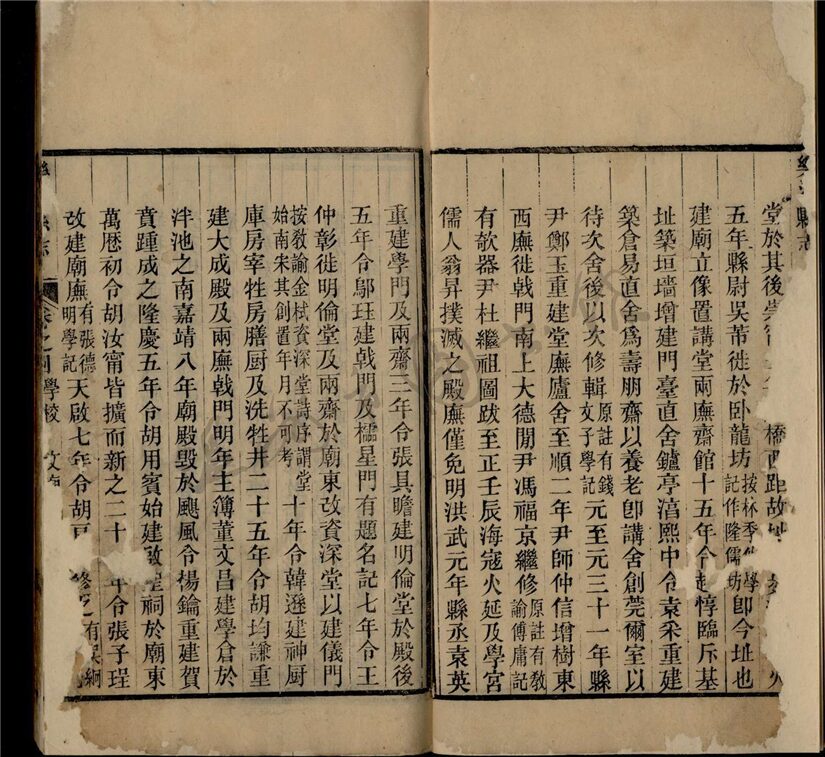 縣志
堂於其後 橋西距故
五年縣尉吳芾徙於卧龍坊按林季 學記作隆儒坊卽今址也
建廟立像置講堂兩廡齋館十五年令趙惇臨斥基
址築垣墻增建門臺直舍鑪亭淯熙中令袁采重建
築倉易直舍爲壽朋齋以養老卽講舍創莞爾室以
待次舍後以次修輯原註有錢文子學記元至元三十一年縣
尹鄭玉重建堂廡廬舍至順二年尹師仲信增樹東
西廡徙戟門南上大德閒尹馮福京繼修原註有敎諭傅庸記
有欹器尹杜繼祖圖跋至正壬辰海寇火延及學宮
儒人翁昇撲滅之殿廡僅免明洪武元年縣丞袁英
重建學門及兩齋三年令張具瞻建明倫堂於殿後
五年令鄔珏建戟門及櫺星門有題名記七年令王
仲彰徙明倫堂及兩齋於廟東改資深堂以建儀門
按敎諭金栻資深堂詩序謂堂始南宋其創置年月不可考十年令韓遜建神厨
庫房宰牲房膳厨及洗牲井二十五年令胡均謙重
建大成殿及兩廡戟門明年主簿董文昌建學倉於
泮池之南嘉靖八年廟殿毁於颶風令楊鑰重建賀
賁踵成之隆慶五年令胡用賓始建啟聖祠於廟東
萬厯初令胡汝甯皆擴而新之二十 年令張子瑆
改建廟廡有張德明學記天啟七年令胡 修之有吳
志 卷之四學校